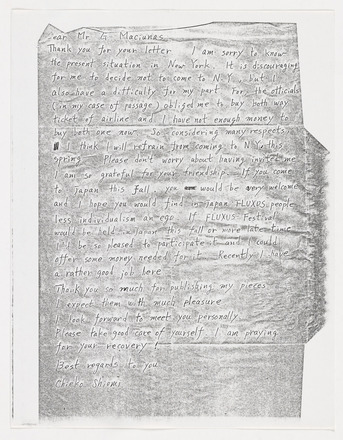 Dear Mr. G. Maciunas
Thank you for your letter I am sorry to know
the present situation in New York. It is discouraging
for me to decide not to come to N.Y., but I
also have a difficulty for my part. For the officials
(in my case of passage) obliged me to buy both way
ticket of airline and I have not enough money to
buy both one now. So considering many respects
I think I will refrain from coming to N.Y. this
spring Please don't worry about having invited me
I am so grateful for your friendship. If you come
to Japan this fall, you would be very welcome
and I hope you would find in Japan FLUXUS people
less individualism an ego. If FLUXUS Festival
would be held in Japan this fall or more late time
I'll be so pleased to participate it and I could
offer some money needed for it Recently I have
a rather good job here
Thank you so much for publishing my pieces
I expect them with much pleasure
I look forward to meet you personally
Please take good care of yourself. I am praying
for your recovery!
Best regards to you
Chieko Shiomi